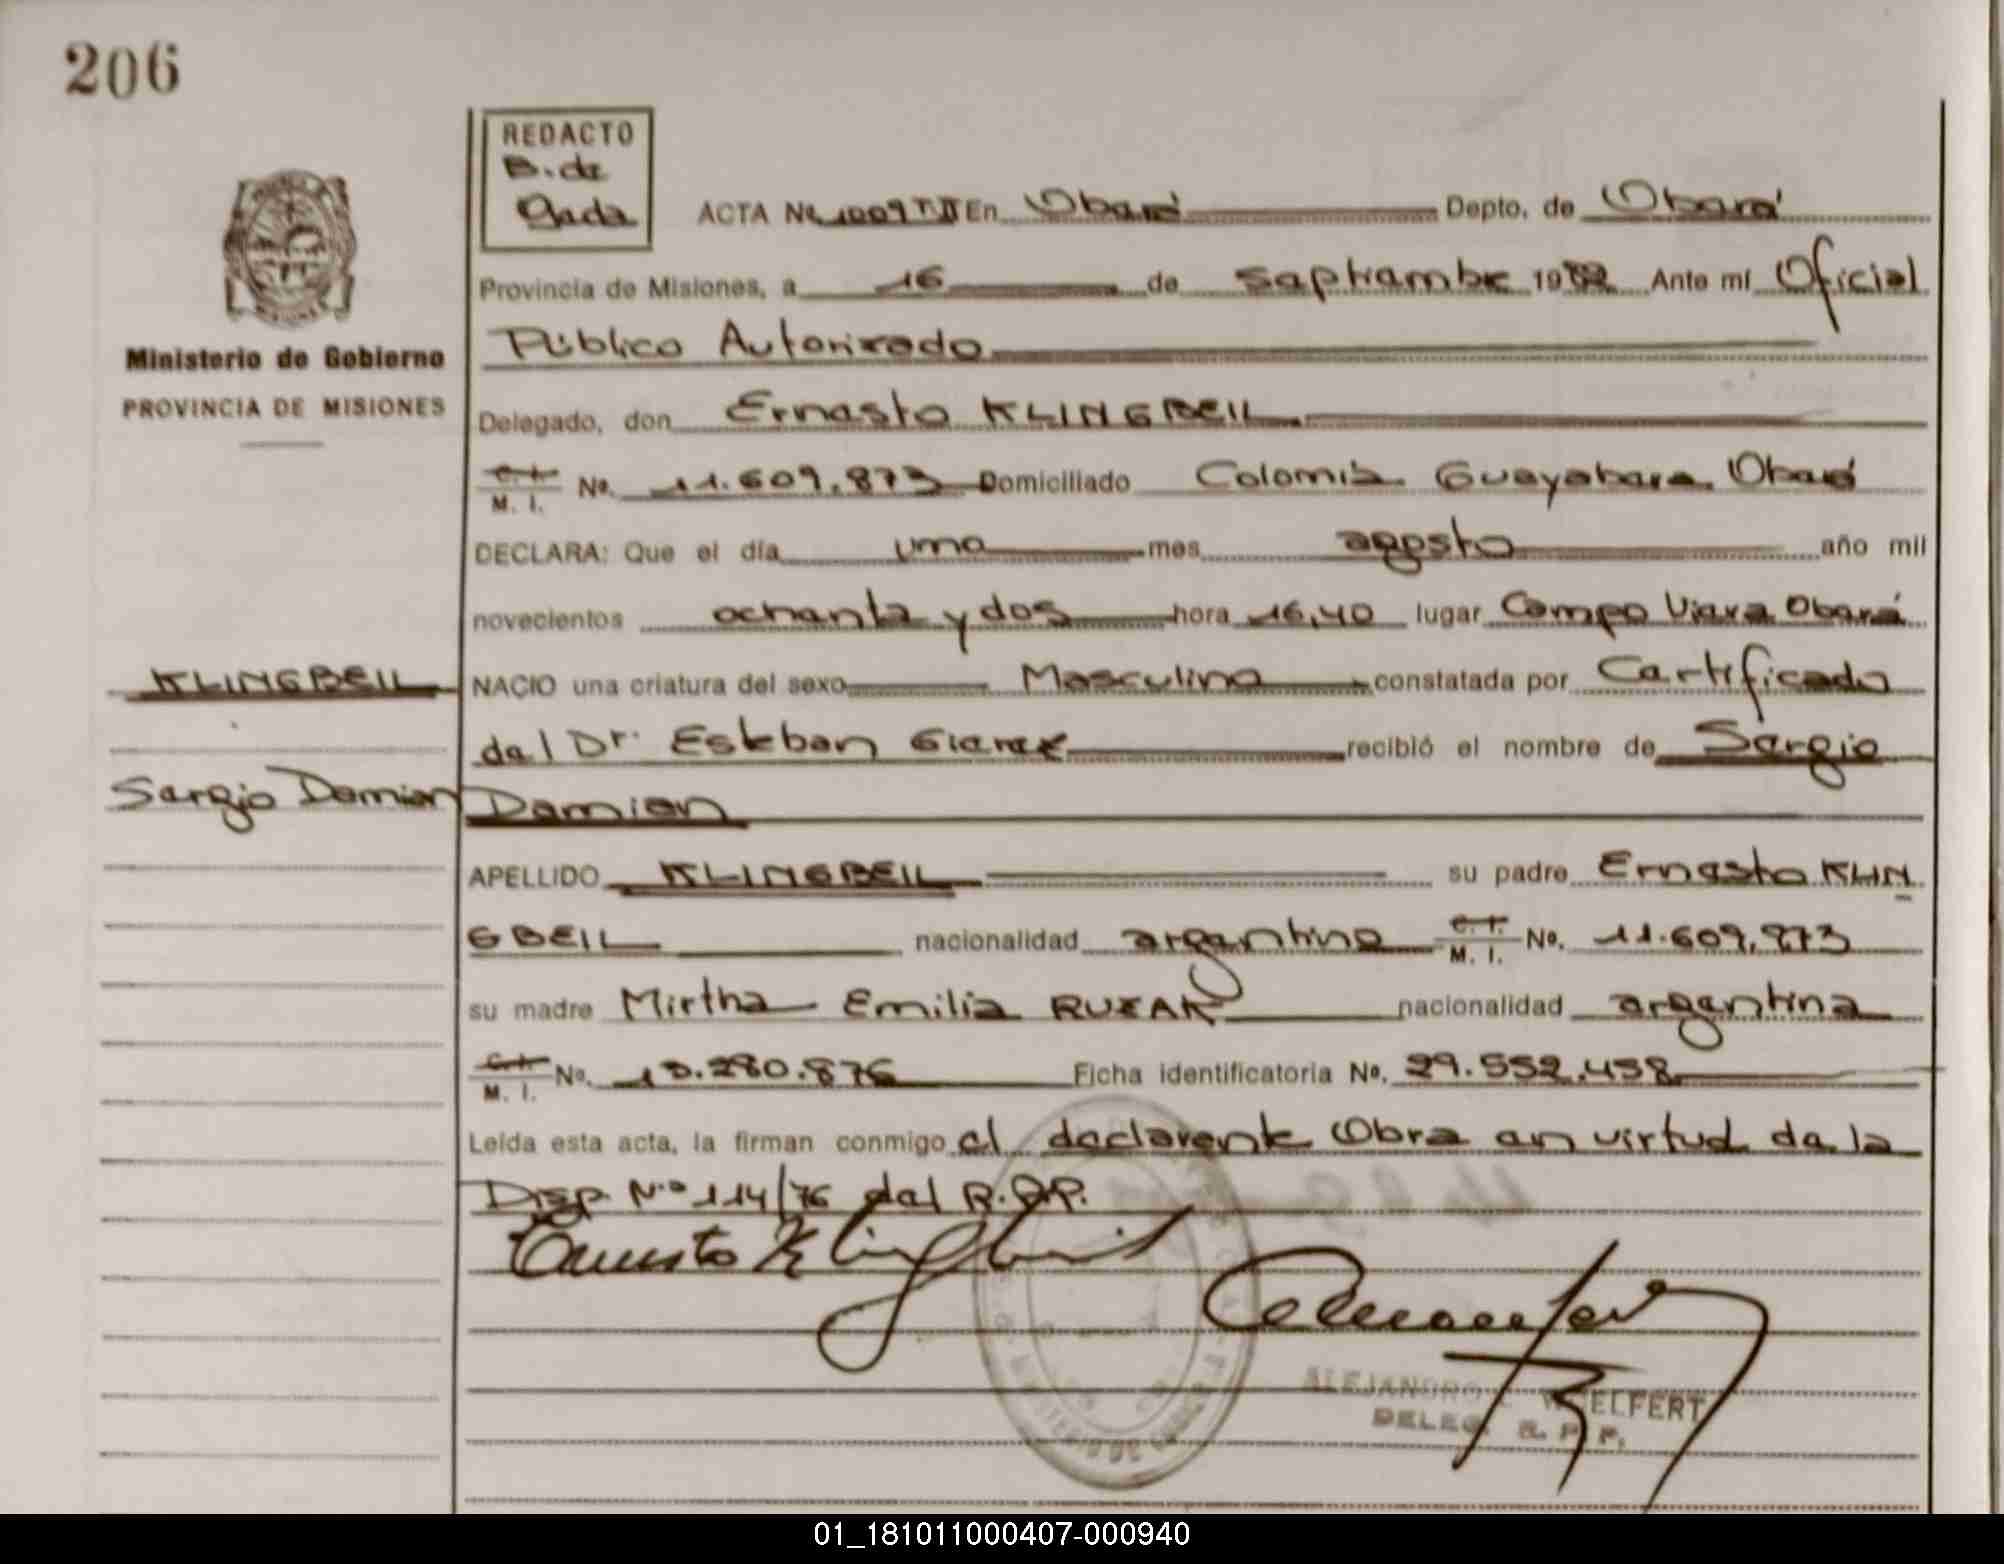 206
REDACTO
B. de
Gada
ACTA Nº 1009 T.II En Oberá Depto. de Oberá
Provincia de Misiones, a 16 de septiembre 1982 Ante mí Oficial
Público Autorizado
Ministerio de Gobierno
PROVINCIA DE MISIONES
Delegado, don Ernesto KLINGBEIL
C.I. M. I. No. 11.609.873 Domiciliado Colonia Guayabera Oberá
DECLARA: Que el día uno mes agosto año mil
novecientos ochenta y dos hora 16,40 lugar Campo Viera Oberá
KLINGBEIL
NACIO una criatura del sexo Masculino constatada por Certificado
del Dr. Esteban recibió el nombre de Sergio
Sergio Damian
Damian
APELLIDO KLINGBEIL su padre Ernesto KLIN
GBEIL nacionalidad argentino C.I. M. I. No. 11.609.873
su madre Mirtha Emilia nacionalidad argentina
C.I. M. I. No. 13.280.876 Ficha identificatoria No. 29.552.458
Leída esta acta, la firman conmigo el declarente Obra en virtud de la
Disp. Nº 114/76 del R.P.P.
Ernesto Klingbeil
ALEJANDRO WOELFERT
DELEG. R. P. P.
01_181011000407-000940